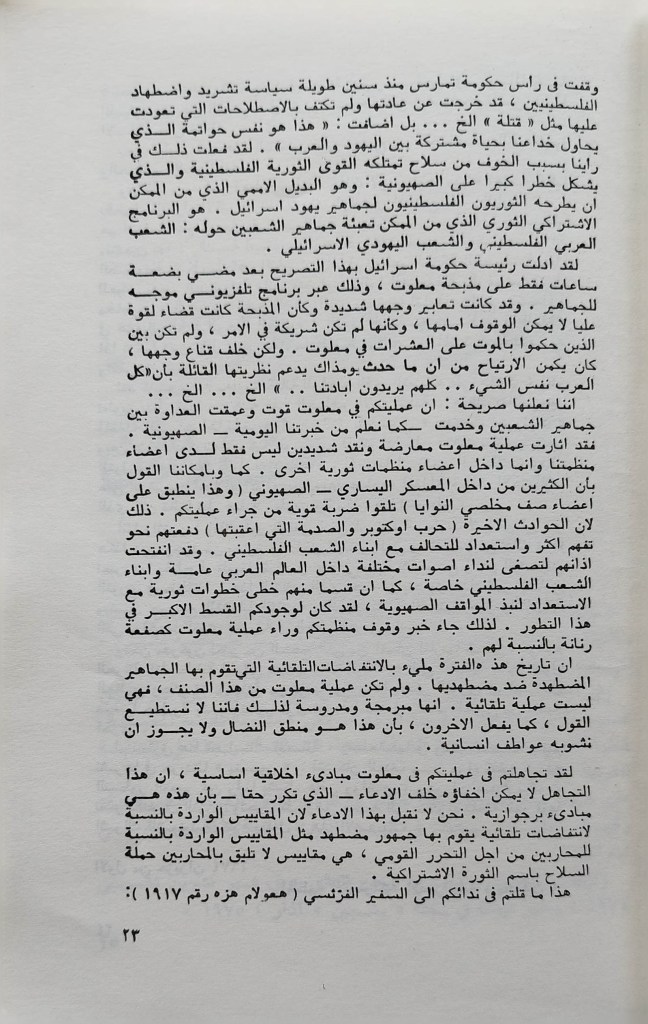 وقفت في راس حكومة تمارس منذ سنين طويلة سياسة تشريد واضطهاد
الفلسطينيين ، قد خرجت عن عادتها ولم تكتف بالاصطلاحات التي تعودت
عليها مثل « قتلة » الخ ... بل اضافت : « هذا هو نفس حواتمة الــذي
يحاول خداعنا بحياة مشتركة بين اليهود والعرب » . لقد فعلت ذلــك في
راينا بسبب الخوف من سلاح تمتلكه القوى الثورية الفلسطينية والــذي
يشكل خطرا كبيرا على الصهيونية : وهو البديل الاممي الذي من الممكن
ان يطرحه الثوريون الفلسطينيون لجماهير يهود اسرائيل . هو البرنامج
الاشتراكي الثوري الذي من الممكن تعبئة جماهير الشعبين حوله : الشعب
العربي الفلسطيني والشعب اليهودي الاسرائيلي .
لقد ادلت رئيسة حكومة اسرائيل بهذا التصريح بعد مضــي بضعــة
ساعات فقط على مذبحة معلوت ، وذلك عبر برنامج تلفزيونــي موجــه
للجماهير . وقد كانت تعابير وجهها شديدة وكأن المذبحة كانت قضاء لقوة
عليا لا يمكن الوقوف امامها ، وكأنها لم تكن شريكة في الامر ، ولم تكن بين
الذين حكموا بالموت على العشرات في معلوت . ولكن خلف قناع وجهها ،
كان يكمن الارتياح من ان ما حدث يومذاك يدعم نظريتها القائلة بأن«كل
العرب نفس الشيء .. كلهم يريدون ابادتنا .. » الخ ... الخ ...
اننا نعلنها صريحة : ان عمليتكم في معلوت قوت وعمقت العداوة بين
جماهير الشعبين وخدمت ــ كما نعلم من خبرتنا اليومية ــ الصهيونية .
فقد اثارت عملية معلوت معارضة ونقد شديدين ليس فقط لــدى اعضاء
منظمتنا وانما داخل اعضاء منظمات ثورية اخرى . كما وبامكاننا القول
بأن الكثيرين من داخل المعسكر اليساري ــ الصهيوني ( وهذا ينطبق على
اعضاء صف مخلصي النوايا ) تلقوا ضربة قوية من جراء عمليتكم . ذلك
لان الحوادث الاخيرة ( حرب اوكتوبر والصدمة التي اعقبتها ) دفعتهم نحو
تفهم اكثر واستعداد للتحالف مع ابناء الشعب الفلسطيني . وقد انفتحت
اذانهم لتصغى لنداء اصوات مختلفة داخل العالم العربي عامــة وابناء
الشعب الفلسطيني خاصة ، كما ان قسما منهم خطى خطوات ثورية مع
الاستعداد لنبذ المواقف الصهيوية ، لقد كان لوجودكم القسط الاكبر في
هذا التطور . لذلك جاء خبر وقوف منظمتكم وراء عملية معلوت كصفعة
رنانة بالنسبة لهم .
ان تاريخ هذ هالفترة مليء بالانتفاضات التلقائية التي تقوم بها الجماهير
المضطهدة ضد مضطهديها . ولم تكن عملية معلوت من هذا الصنف ، فهي
ليست عملية تلقائية . انها مبرمجة ومدروسة لذلــك فاننا لا نستطيــع
القول ، كما يفعل الاخرون ، بأن هذا هــو منطق النضال ولا يجــوز ان
نشوبه عواطف انسانية .
لقد تجاهلتم في عمليتكم في معلوت مبادىء اخلاقية اساسية ، ان هذا
التجاهل لا يمكن اخفاؤه خلف الادعاء ــ الذي تكرر حقا ــ بأن هذه هــي
مبادىء برجوازية . نحن لا نقبل بهذا الادعاء لان المقاييس الواردة بالنسبة
لانتفاضات تلقائية يقوم بها جمهور مضطهد مثل المقاييس الواردة بالنسبة
للمحاربين من اجل التحرر القومي ، هي مقاييس لا تليق بالمحاربين حملة
السلاح باسم الثورة الاشتراكية .
هذا ما قلتم في ندائكم الى السفير الفرنسي ( هعولام هزه رقم ١٩١٧ ):
٢٣